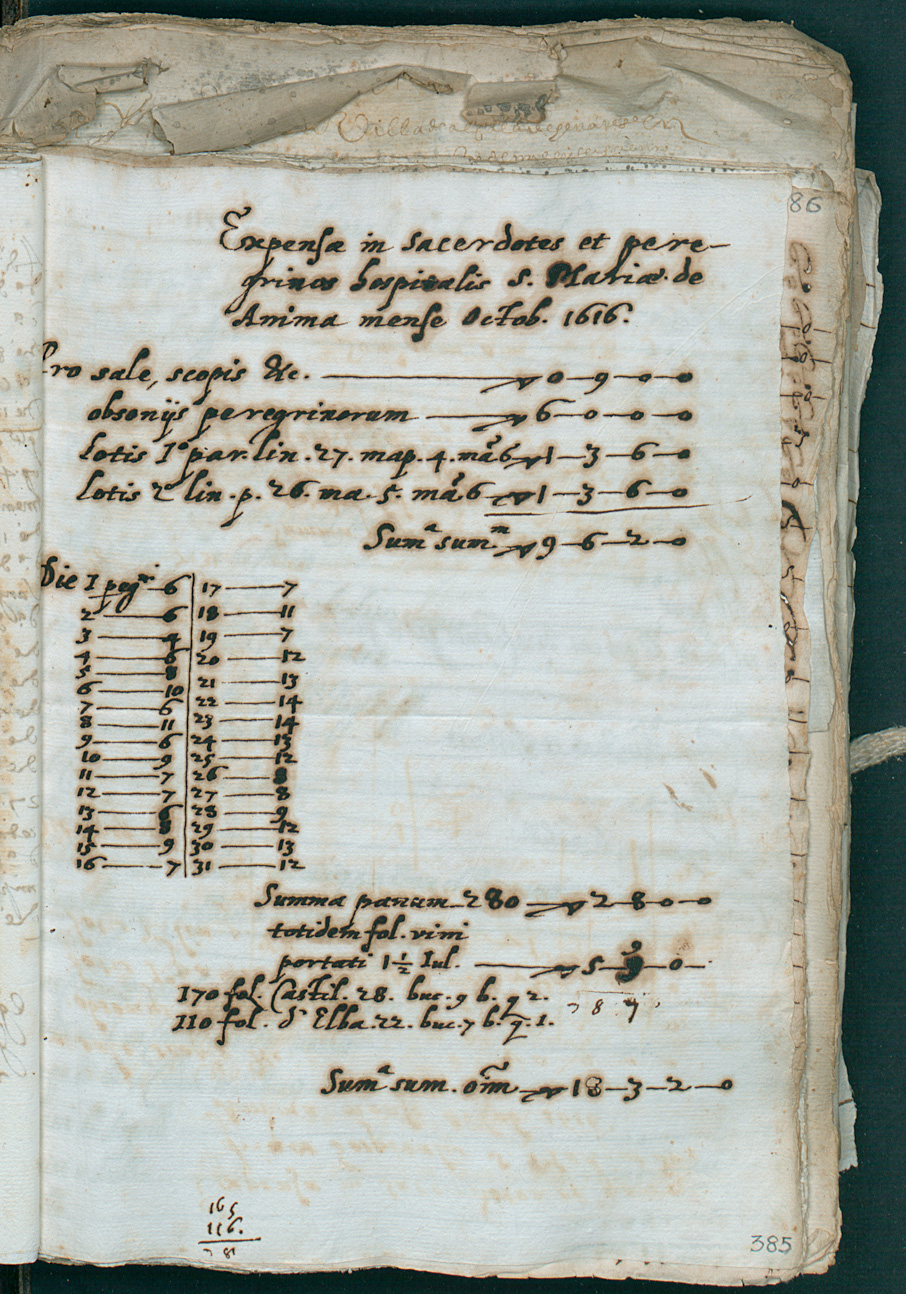 86
Expensæ in Sacerdotes et pere-
grinos hospitalis S. Mariæ de
Anima mense Octob. 1616.
Pro sale, scopis &c. — ▽ 0—9—0—0
obsonijs peregrinorum — ▽ 6—0—0—0
Lotis 1º par. lin. 27. map. 4. mã 6 ▽ 1—3—6—0
Lotis 2º lin. p. 26. ma. 5. mã 6 ▽ 1—3—6—0
Sumª sumᵐ ▽ 9—6—2—0
Die 1 pegʳⁱ 6 | 17 — 7
2 — 6 | 18 — 11
3 — 4 | 19 — 7
4 — 6 | 20 — 12
5 — 8 | 21 — 13
6 — 10 | 22 — 14
7 — 6 | 23 — 14
8 — 11 | 24 — 13
9 — 6 | 25 — 12
10 — 9 | 26 — 8
11 — 7 | 27 — 8
12 — 7 | 28 — 9
13 — 6 | 29 — 12
14 — 8 | 30 — 13
15 — 9 | 31 — 12
16 — 7
Summa panum 280 — ▽ 2—8—0—0
totidem fol. vini
portati 1½ Iul. — ▽ 5—9—0—
170 fol. Castil. 28. buc. 9 b. q 2.
110 fol. d' Elba. 22. buc. 7 b. q. 1.
Sumª sum. om̃ ▽ 18—3—2—0
165
116.
385